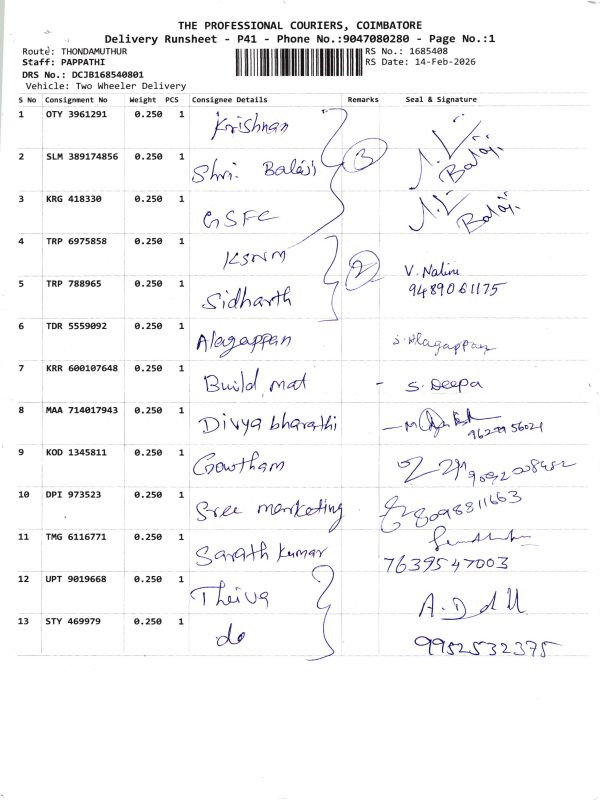 THE PROFESSIONAL COURIERS, COIMBATORE
Delivery Runsheet - P41 - Phone No.:9047080280 - Page No.:1
Route: THONDAMUTHUR RS No.: 1685408
Staff: PAPPATHI RS Date: 14-Feb-2026
DRS No.: DCJB168540801
Vehicle: Two Wheeler Delivery
S No Consignment No Weight PCS Consignee Details Remarks Seal & Signature
1 OTY 3961291 0.250 1 Krishnan
2 SLM 389174856 0.250 1 Shri Balaji 3 Balaji
3 KRG 418330 0.250 1 GSFC Balaji
4 TRP 6975858 0.250 1 KSNM
5 TRP 788965 0.250 1 Sidharth 2 V. Nalini 9489061175
6 TDR 5559092 0.250 1 Alagappan S. Alagappan
7 KRR 600107648 0.250 1 Build mat - S. Deepa
8 MAA 714017943 0.250 1 Divya bharathi
9 KOD 1345811 0.250 1 Gowtham
10 DPI 973523 0.250 1 Sree marketing 8098811663
11 TMG 6116771 0.250 1 Sarath kumar 7639547003
12 UPT 9019668 0.250 1 Theiva
13 STY 469979 0.250 1 do 9952532375